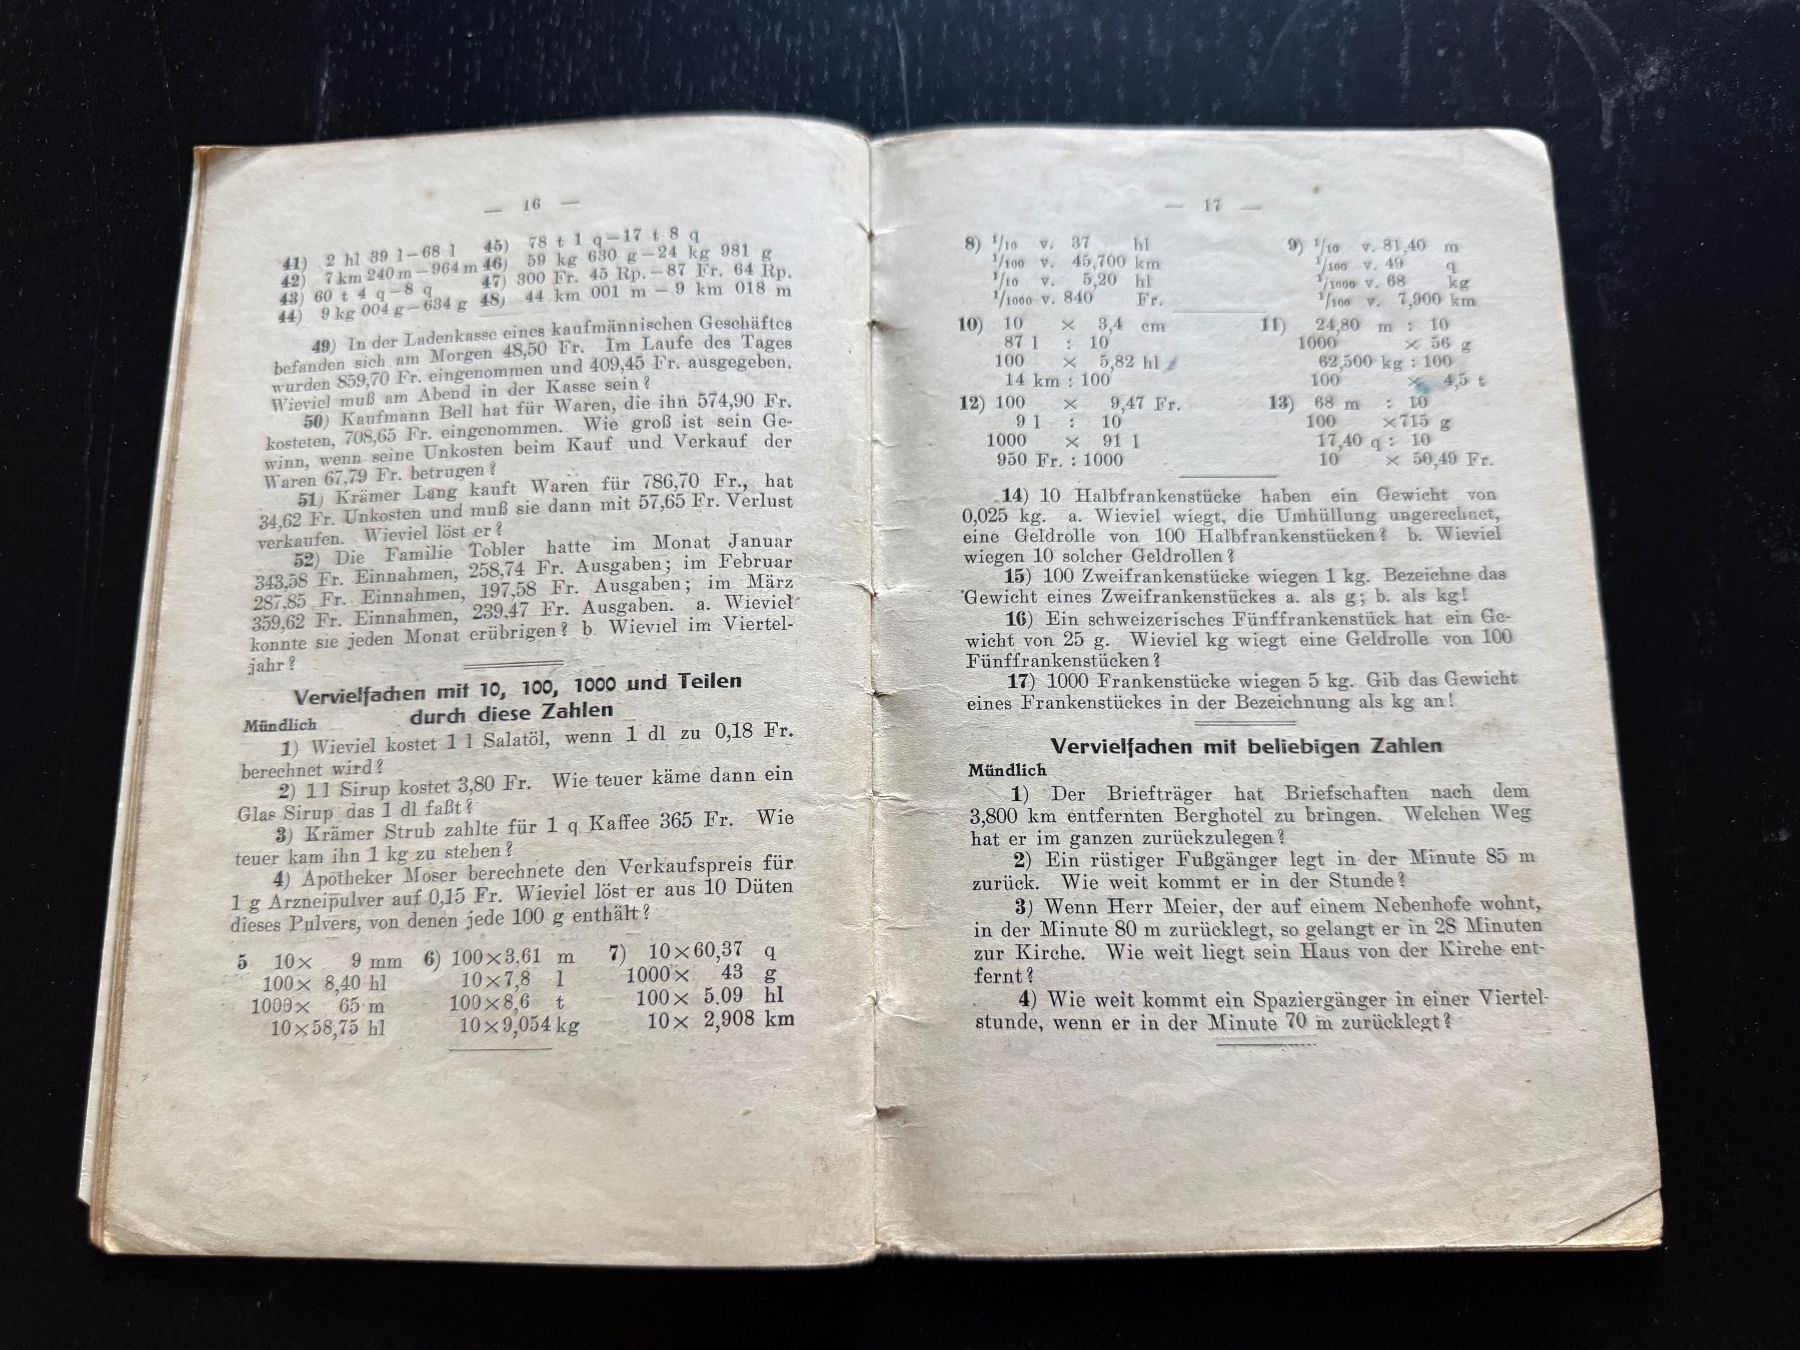 — 16 —
41) 2 hl 39 l–68 l 45) 78 t 1 q–17 t 8 q
42) 7 km 240 m – 964 m 46) 59 kg 630 g–24 kg 981 g
43) 60 t 4 q–8 q 47) 300 Fr. 45 Rp.–87 Fr. 64 Rp.
44) 9 kg 004 g–634 g 48) 44 km 001 m – 9 km 018 m
49) In der Ladenkasse eines kaufmännischen Geschäftes
befanden sich am Morgen 48,50 Fr. Im Laufe des Tages
wurden 859,70 Fr. eingenommen und 409,45 Fr. ausgegeben.
Wieviel muß am Abend in der Kasse sein?
50) Kaufmann Bell hat für Waren, die ihn 574,90 Fr.
kosteten, 708,65 Fr. eingenommen. Wie groß ist sein Ge-
winn, wenn seine Unkosten beim Kauf und Verkauf der
Waren 67,79 Fr. betrugen?
51) Krämer Lang kauft Waren für 786,70 Fr., hat
34,62 Fr. Unkosten und muß sie dann mit 57,65 Fr. Verlust
verkaufen. Wieviel löst er?
52) Die Familie Tobler hatte im Monat Januar
343,58 Fr. Einnahmen, 258,74 Fr. Ausgaben; im Februar
287,85 Fr. Einnahmen, 197,58 Fr. Ausgaben; im März
359,62 Fr. Einnahmen, 239,47 Fr. Ausgaben. a. Wieviel
konnte sie jeden Monat erübrigen? b. Wieviel im Viertel-
jahr?
Vervielfachen mit 10, 100, 1000 und Teilen
durch diese Zahlen
Mündlich
1) Wieviel kostet 1 l Salatöl, wenn 1 dl zu 0,18 Fr.
berechnet wird?
2) 1 l Sirup kostet 3,80 Fr. Wie teuer käme dann ein
Glas Sirup das 1 dl faßt?
3) Krämer Strub zahlte für 1 q Kaffee 365 Fr. Wie
teuer kam ihn 1 kg zu stehen?
4) Apotheker Moser berechnete den Verkaufspreis für
1 g Arzneipulver auf 0,15 Fr. Wieviel löst er aus 10 Düten
dieses Pulvers, von denen jede 100 g enthält?
5 10× 9 mm 6) 100×3,61 m 7) 10×60,37 q
100× 8,40 hl 10×7,8 l 1000× 43 g
1000× 65 m 100×8,6 t 100× 5.09 hl
10×58,75 hl 10×9,054 kg 10× 2,908 km
— 17 —
8) 1/10 v. 37 hl 9) 1/10 v. 81,40 m
1/100 v. 45,700 km 1/100 v. 49 q
1/10 v. 5,20 hl 1/1000 v. 68 kg
1/1000 v. 840 Fr. 1/100 v. 7,900 km
10) 10 × 3,4 cm 11) 24,80 m : 10
87 l : 10 1000 × 56 g
100 × 5,82 hl 62,500 kg : 100
14 km : 100 100 × 4,5 t
12) 100 × 9,47 Fr. 13) 68 m : 10
9 l : 10 100 ×715 g
1000 × 91 l 17,40 q : 10
950 Fr. : 1000 10 × 50,49 Fr.
14) 10 Halbfrankenstücke haben ein Gewicht von
0,025 kg. a. Wieviel wiegt, die Umhüllung ungerechnet,
eine Geldrolle von 100 Halbfrankenstücken? b. Wieviel
wiegen 10 solcher Geldrollen?
15) 100 Zweifrankenstücke wiegen 1 kg. Bezeichne das
Gewicht eines Zweifrankenstückes a. als g; b. als kg!
16) Ein schweizerisches Fünffrankenstück hat ein Ge-
wicht von 25 g. Wieviel kg wiegt eine Geldrolle von 100
Fünffrankenstücken?
17) 1000 Frankenstücke wiegen 5 kg. Gib das Gewicht
eines Frankenstückes in der Bezeichnung als kg an!
Vervielfachen mit beliebigen Zahlen
Mündlich
1) Der Briefträger hat Briefschaften nach dem
3,800 km entfernten Berghotel zu bringen. Welchen Weg
hat er im ganzen zurückzulegen?
2) Ein rüstiger Fußgänger legt in der Minute 85 m
zurück. Wie weit kommt er in der Stunde?
3) Wenn Herr Meier, der auf einem Nebenhofe wohnt,
in der Minute 80 m zurücklegt, so gelangt er in 28 Minuten
zur Kirche. Wie weit liegt sein Haus von der Kirche ent-
fernt?
4) Wie weit kommt ein Spaziergänger in einer Viertel-
stunde, wenn er in der Minute 70 m zurücklegt?